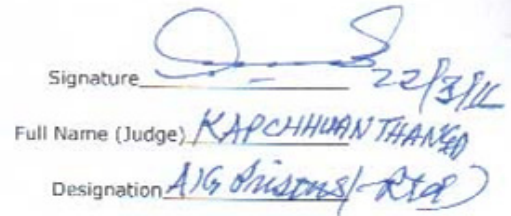 Signature 22/3/11
Full Name (Judge) KAPCHHUANTHANGA
Designation AIG Prisons (Rtd)